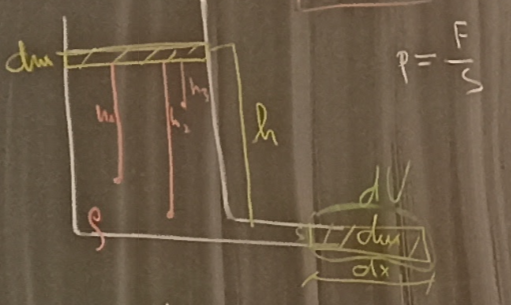 dm
h₁
h₂
h₃
h
p = F/S
ρ
dV
S
dm
dx